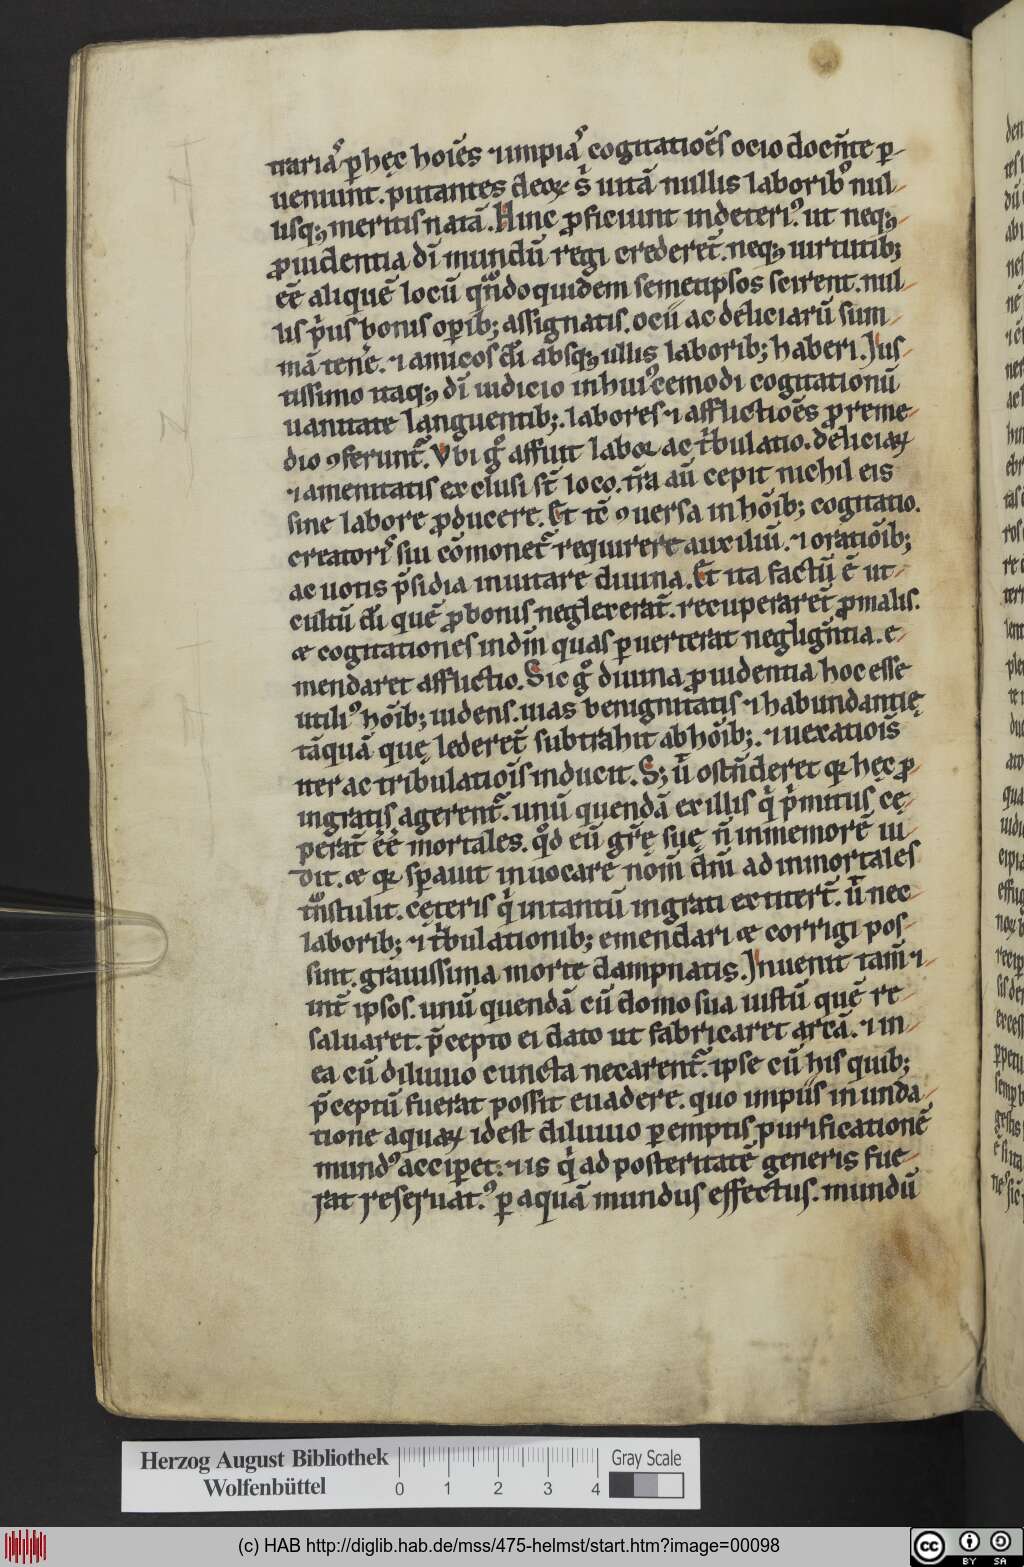 trariaꝰ ꝑ hęc hoiēs ⁊ impiaꝰ cogitatiōes ocio docn̄te ꝑ-
ueniunt. putantes deoꝝ s̄ uitā nullis laboribꝰ nul-
lisqꝫ meritis natā. Hinc ꝓficiunt indeteriꝰ. ut neqꝫ
ꝓuidentia di mundū regi crederet̄. neqꝫ uirtutibꝫ
eē aliquē locū. qn̄do quidem semetipsos scirent. nul-
lis pꝰus bonis oꝑibꝫ assignatis. ocii ac deliciarū sum-
mā tene. ⁊ amicos di absqꝫ ullis laboribꝫ haberi. Jus-
tissimo itaqꝫ di iudicio in huiꝰcemodi cogitationū
uanitate languentibꝫ. labores ⁊ afflictiōes ꝓ reme-
dio ꝯferunt᷑. Vbi gͦ affuit labor ac tͥbulatio. deliciaꝝ
⁊ amenitatis exclusi st̄ loco. tr̄a aū cepit nichil eis
sine labore ꝓducere. Et tc̄ ꝯuersa in hōibꝫ cogitatio.
creatoriꝰ sui cōmonet᷑ requirere auxiliū. ⁊ oratiōibꝫ
ac uotis p̄sidia inuitare diuina. Et ita factū ē ut
cultū di quē ꝓ bonis neglexerat̄. recuperaret̄ ꝓ malis.
æ cogitationes indm̄ quas ꝑuerterat neglign̄tia. e-
mendaret afflictio. Sic gͦ diuina ꝓuidentia hoc esse
utiliꝰ hōibꝫ uidens. uias benignitatis ⁊ habundantię
tāquā quę lederet̄ subtrahit ab hōibꝫ. ⁊ uexatiois
iter ac tribulatiois inducit. Sꝫ ū ostn̄deret qꝛ hęc ꝓ
ingratis agerent᷑. unū quendā ex illis qͥ pͥmitus cę-
perat̄ eē mortales. qͦd eū gr̄ę suę n̄ inmemorē ui-
dit. æ qꝛ sꝑauit inuocare nōm dn̄i ad inmortales
tn̄stulit. cęteris qͥ intantū ingrati extiter̄t. ū nec
laboribꝫ ⁊ tͥbulationibꝫ emendari æ corrigi pos-
sint. grauissima morte dampnatis. Jnuenit tam̄ ⁊
int̄ ipsos. unū quendā cū domo sua iustū quē re-
saluaret. p̄cepto ei dato ut fabricaret arcā. ⁊ in
ea cū diluuio cuncta necarent᷑. ipse cū his quibꝫ
p̄ceptū fuerat possit euadere. quo impiis in unda
tione aquaꝝ idest diluuio ꝑemptis purificationē
mundꝰ acciꝑet. ⁊ is qͥ ad posteritatē generis fue-
rat reseruatꝰ. ꝑ aquā mundus effectus. mundū
Herzog August Bibliothek
Wolfenbüttel
0 1 2 3 4
Gray Scale
(c) HAB http://diglib.hab.de/mss/475-helmst/start.htm?image=00098
cc BY SA